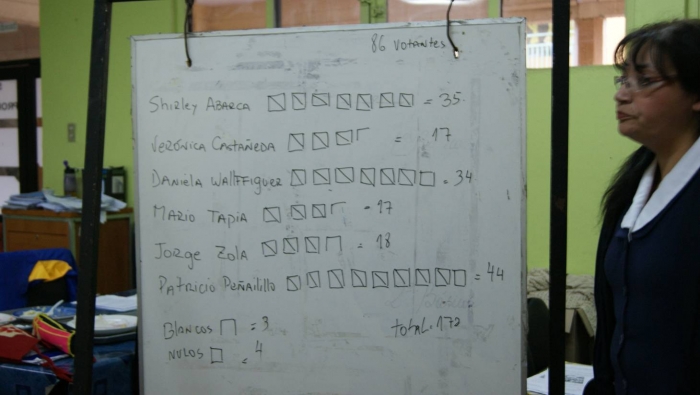 86 Votantes
Shirley Abarca = 35
Verónica Castañeda = 17
Daniela Wallffiguer = 34
Mario Tapia = 17
Jorge Zola = 18
Patricio Peñailillo = 44
Blancos = 3
total = 172
Nulos = 4